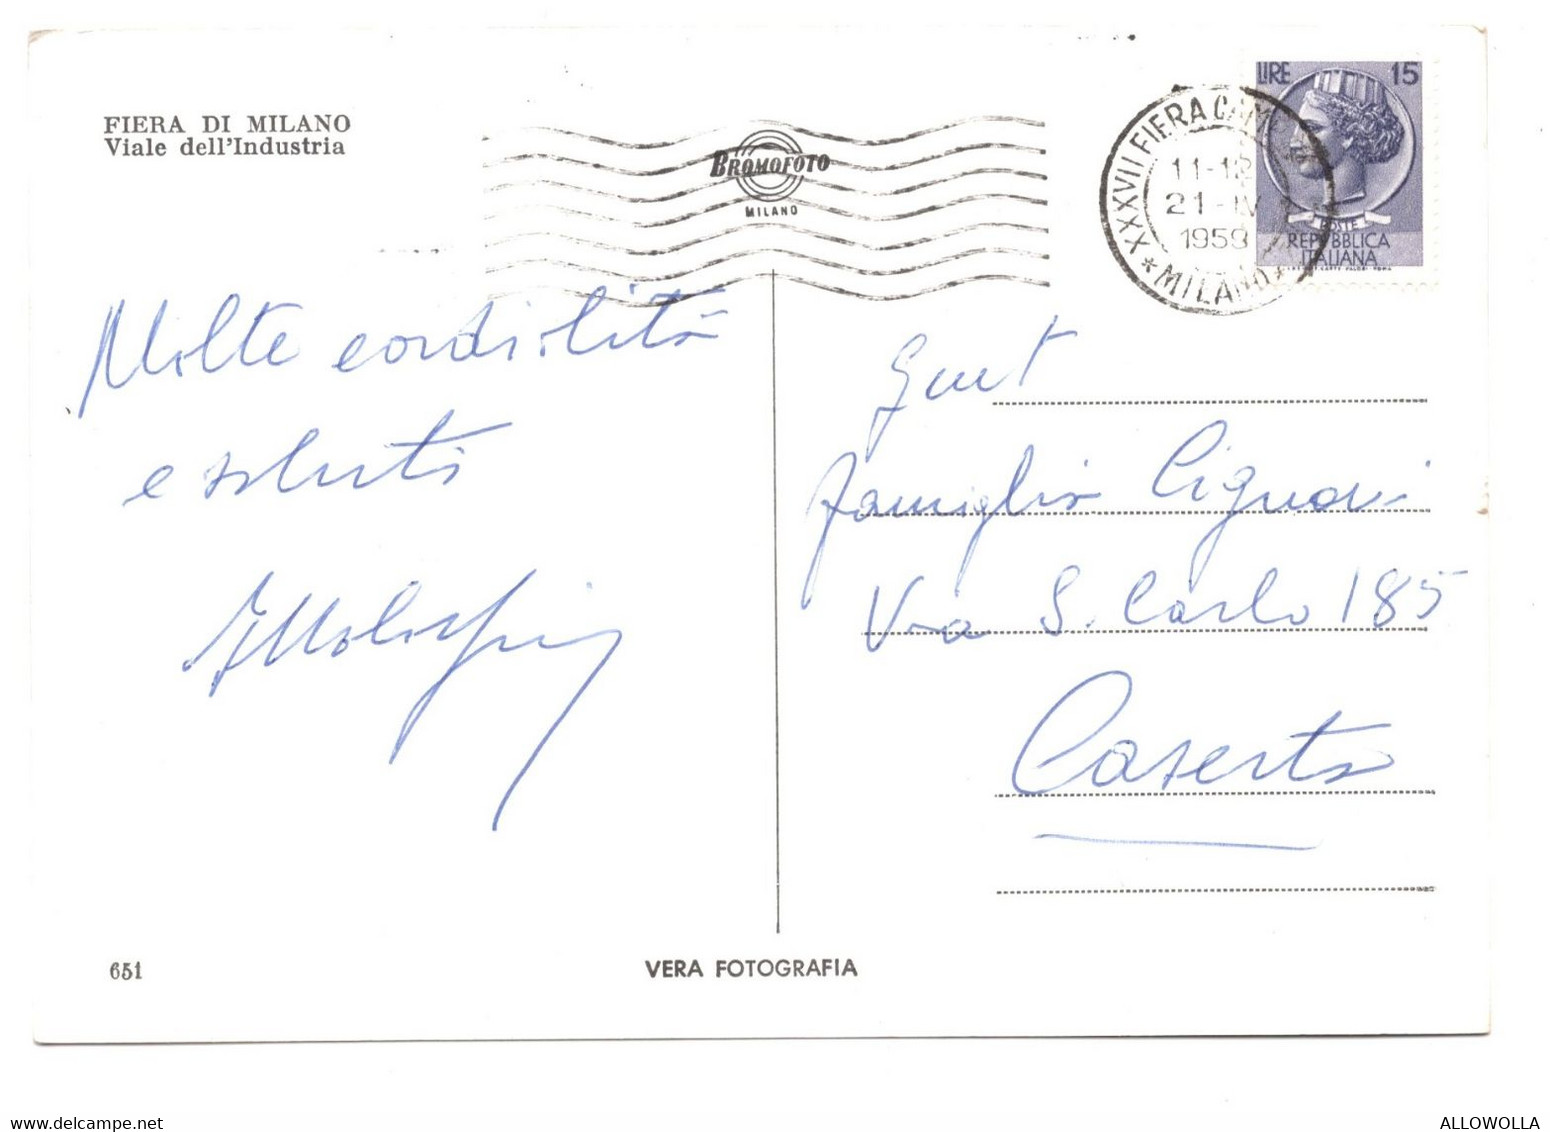 FIERA DI MILANO
Viale dell'Industria
BROMOFOTO
MILANO
XXXVII FIERA CAM
11-12
21-IV
1959
* MILANO *
LIRE 15
POSTE
REPVBBLICA
ITALIANA
Molte cordialità
e saluti
Gent
famiglia
Via S. Carlo 185
Caserta
651
VERA FOTOGRAFIA
ALLOWOLLA